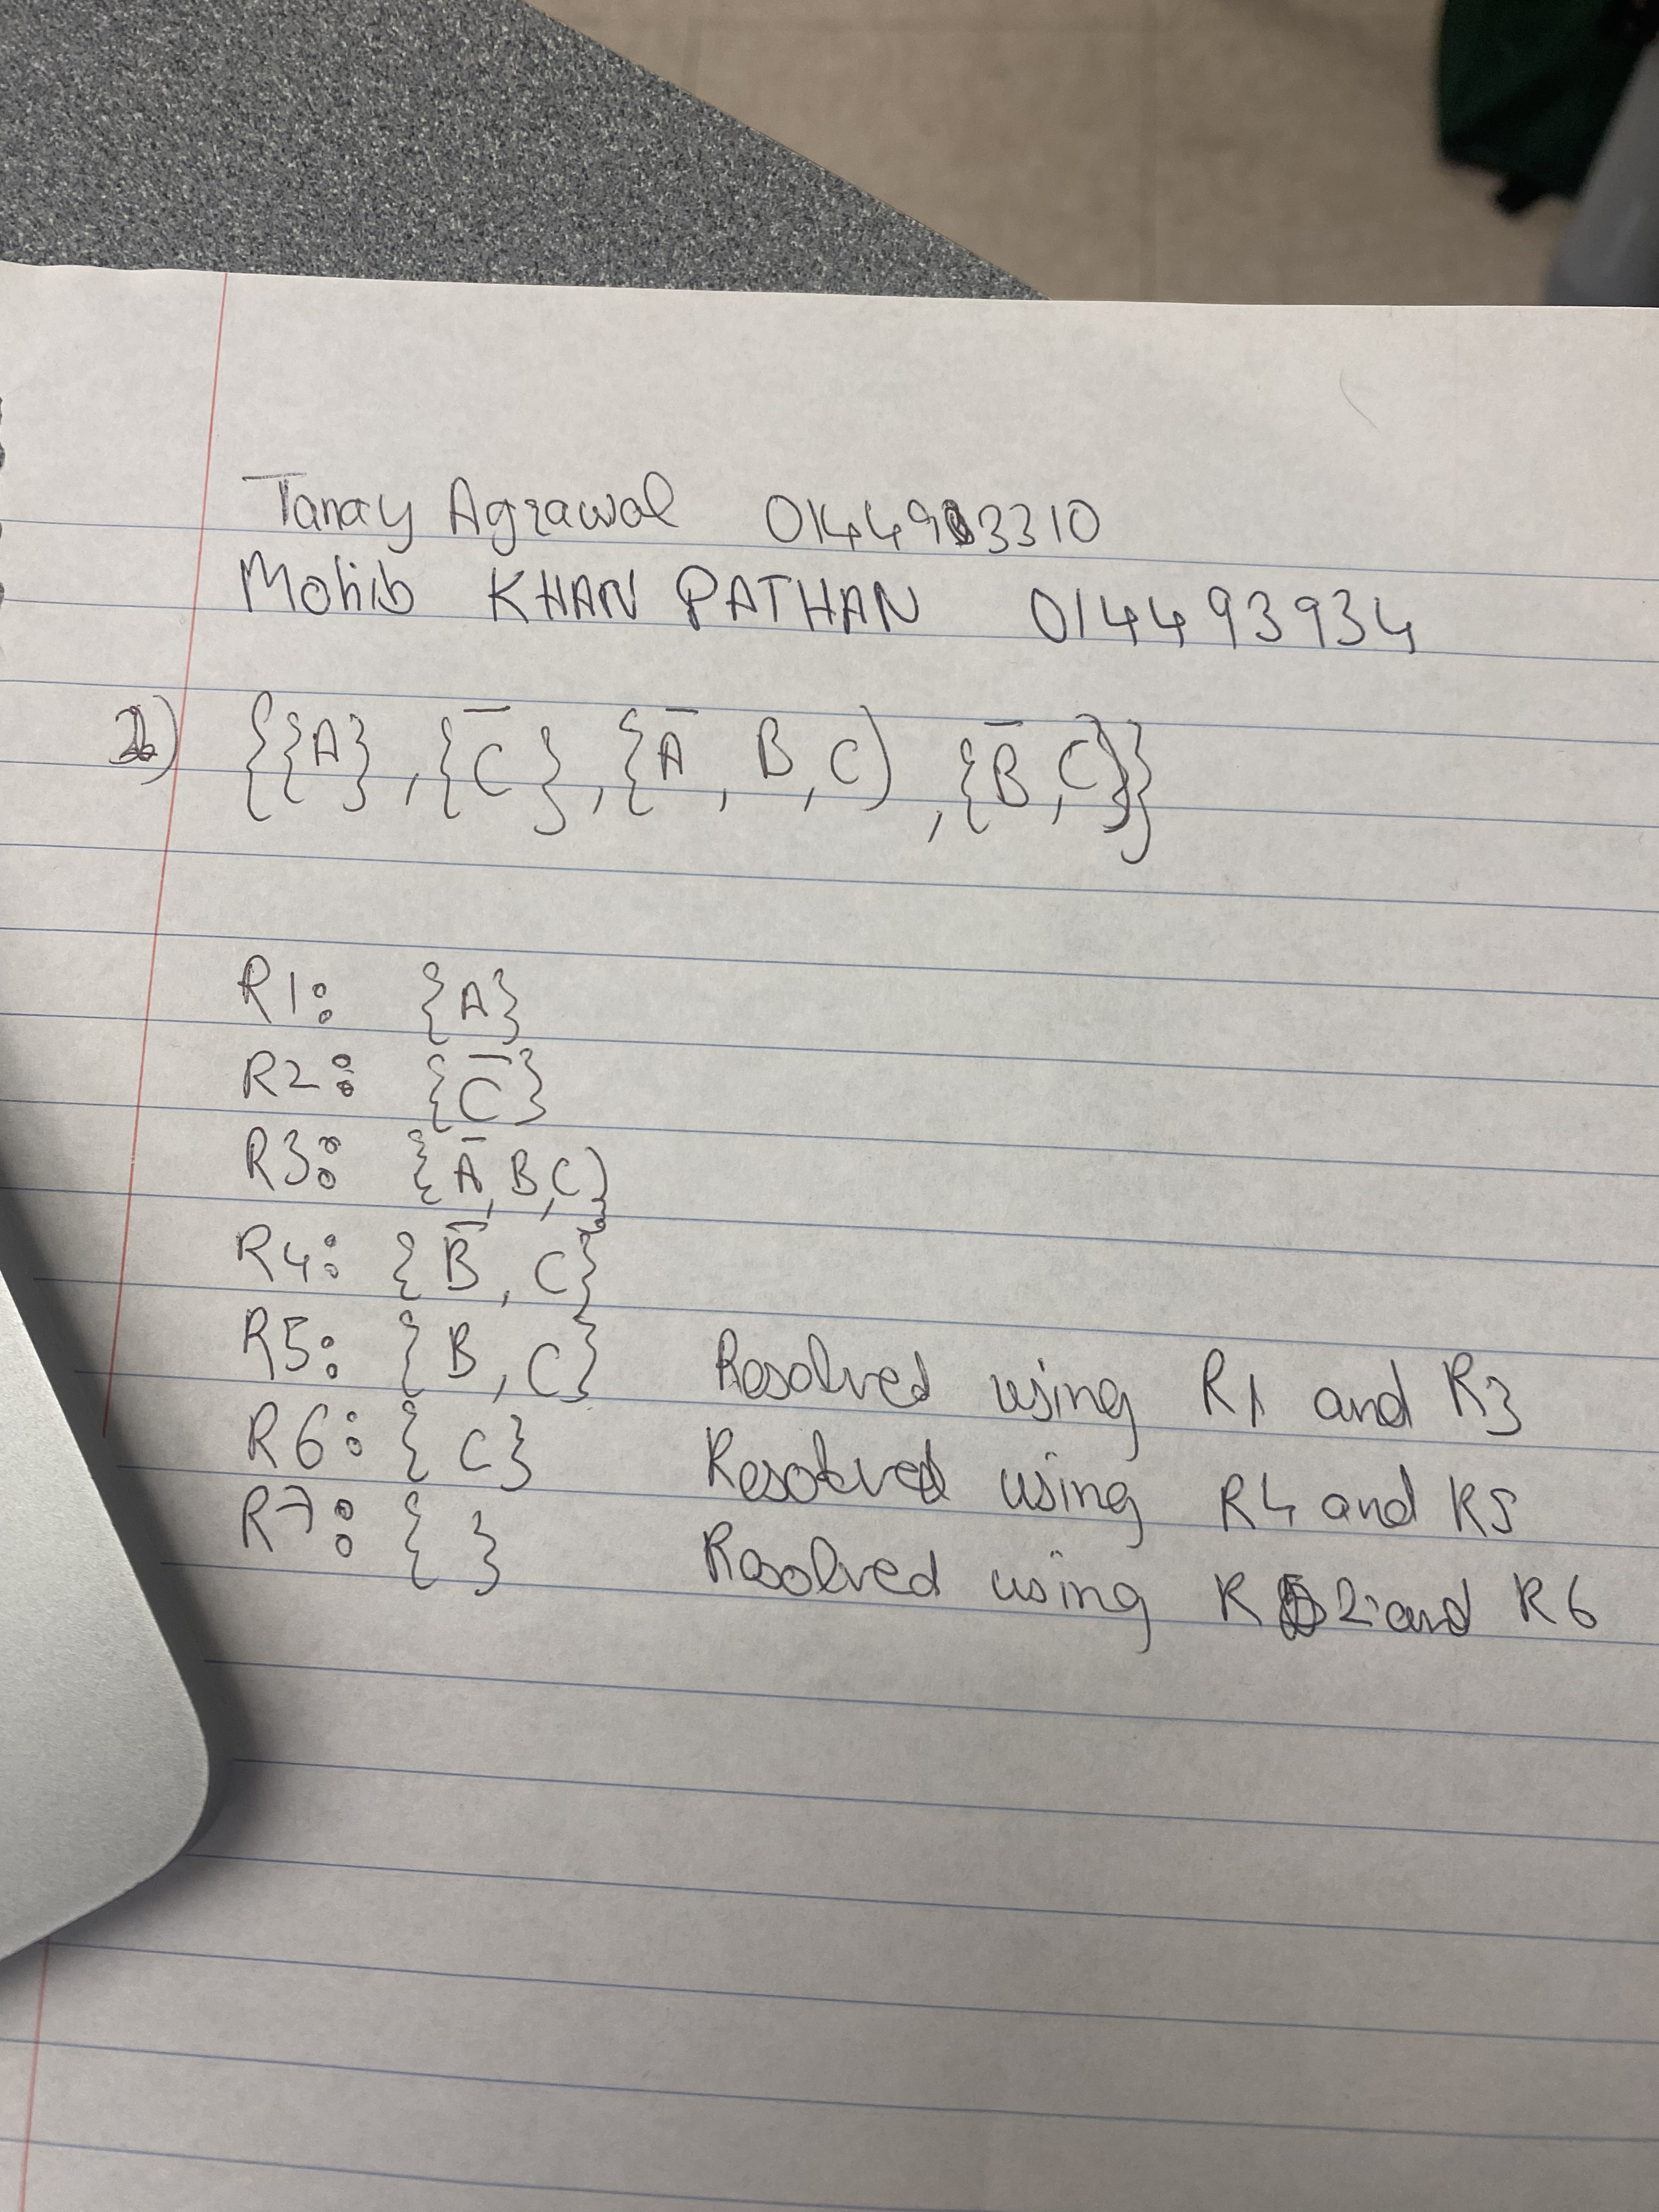 Tanay Agrawal 014493310
Mohib KHAN PATHAN 014493934
1) {{A}, {C̅}, {A̅, B, C), {B̅, C}}
R1: {A}
R2: {C̅}
R3: {A̅, B, C}
R4: {B̅, C}
R5: {B, C} Resolved using R1 and R3
R6: {C} Resolved using R4 and R5
R7: { } Resolved using R2 and R6